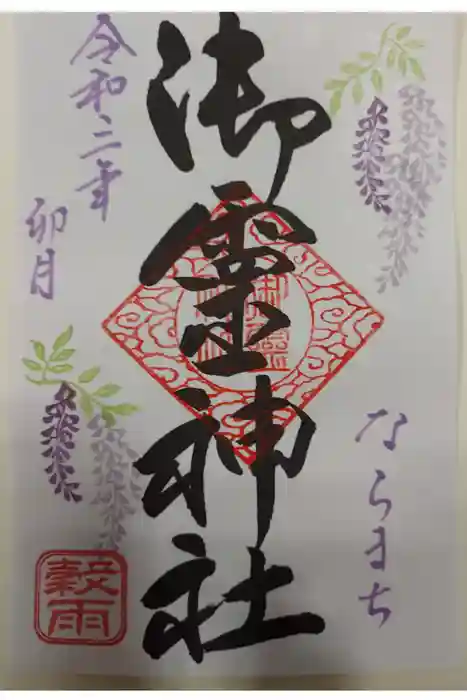 ならまち
御霊神社
令和二年
卯月
穀雨